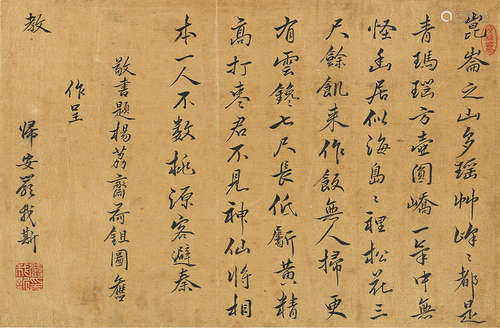 崑崙之山多瑶艸峰〻都是
青瑪瑙方壺圓嶠一年中無
怪幽居似海島〻裡松花三
尺餘飢来作飯無人掃更
有雲鑱七尺長低斸黄精
高打枣君不見神仙将相
本一人不数桃源客避秦
敬書題楊荔齋荷鉏圖舊
作呈
教
歸安嚴我斯